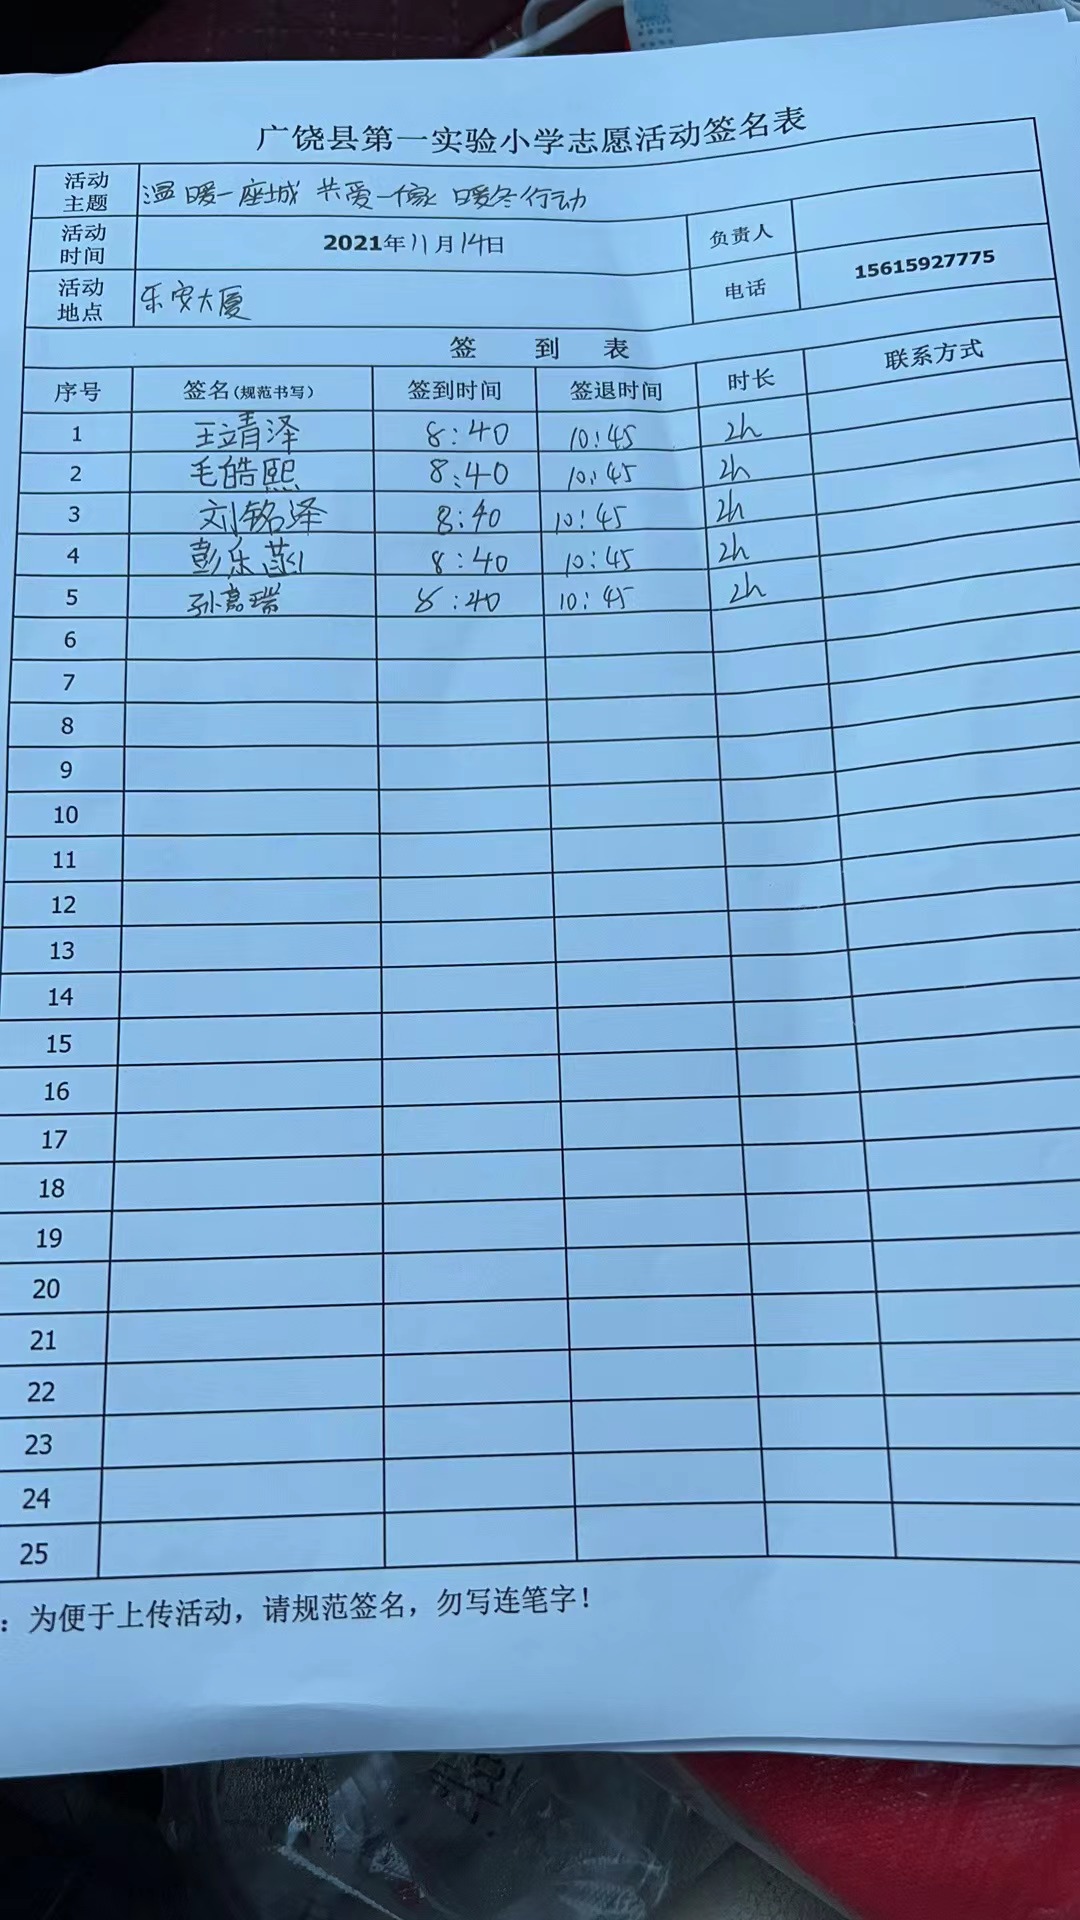 广饶县第一实验小学志愿活动签名表
活动主题 温暖一座城 共爱一家 暖冬行动
活动时间 2021年11月14日 负责人
活动地点 乐安大厦 电话 15615927775
签 到 表
序号 签名(规范书写) 签到时间 签退时间 时长 联系方式
1 王靖泽 8:40 10:45 2h
2 毛皓熙 8:40 10:45 2h
3 刘铭泽 8:40 10:45 2h
4 彭乐菡 8:40 10:45 2h
5 孙嘉瑞 8:40 10:45 2h
6
7
8
9
10
11
12
13
14
15
16
17
18
19
20
21
22
23
24
25
：为便于上传活动，请规范签名，勿写连笔字！